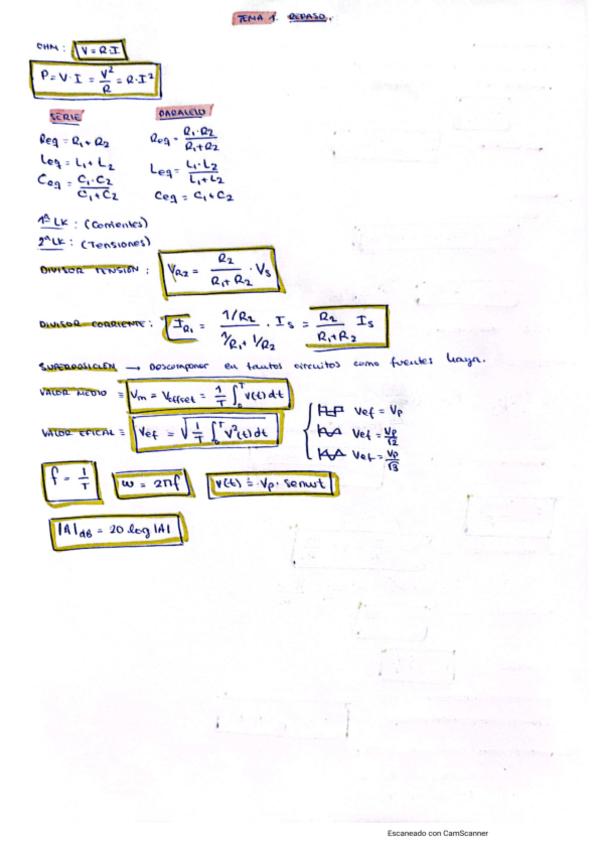 TEMA 1. REPASO.
OHM: V=R·I
P=V·I = V²/R = R·I²
SERIE PARALELO
Req = R1+R2 Req = R1·R2/R1+R2
Leq = L1+L2 Leq = L1·L2/L1+L2
Ceq = C1·C2/C1+C2 Ceq = C1+C2
1ª LK: (Corrientes)
2ª LK: (Tensiones)
DIVISOR TENSIÓN: VR2 = R2/R1+R2 · Vs
DIVISOR CORRIENTE: IR1 = 1/R1/1/R1+1/R2 · Is = R2/R1+R2 Is
SUPERPOSICIÓN → Descomponer en tantos circuitos como fuentes haya.
VALOR MEDIO ≡ Vm = Voffset = 1/T ∫₀ᵀ v(t) dt
VALOR EFICAZ ≡ Vef = √1/T ∫₀ᵀ v²(t) dt
Vef = Vp
Vef = Vp/√2
Vef = Vp/√3
f = 1/T ω = 2πf v(t) = Vp· senωt
|A|dB = 20 log |A|
Escaneado con CamScanner